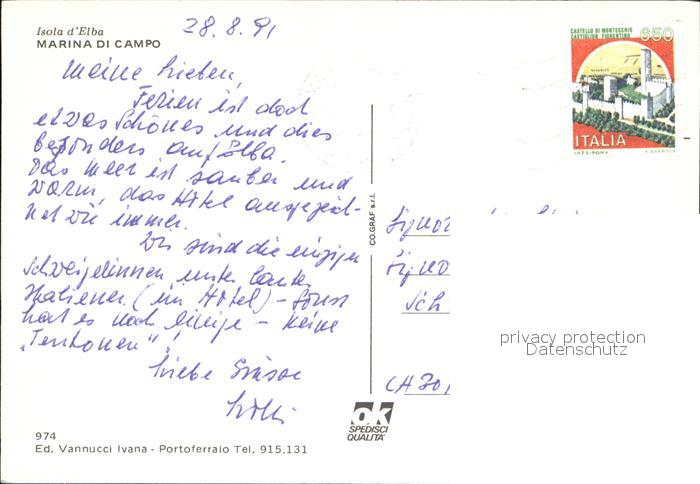 Isola d'Elba
MARINA DI CAMPO
28.8.91
Meine Lieben,
Ferien ist doch
etwas Schönes und dies
besonders auf Elba.
Das Meer ist sauber und
warm, das Hotel ausgezeich-
net wie immer.
Wir sind die einzigen
Schweizerinnen unter lauter
Italiener (im Hotel) - sonst
hat es noch einige - keine
"Teutonen"!
Liebe Grüsse
CASTELLO DI MONTECCHIO
CASTIGLION FIORENTINO
650
ITALIA
I.P.Z.S.-ROMA
CO.GRAF s.r.l.
Signor
Signo
Sch
CH 301
privacy protection
Datenschutz
ok
SPEDISCI
QUALITA'
974
Ed. Vannucci Ivana - Portoferraio Tel. 915.131